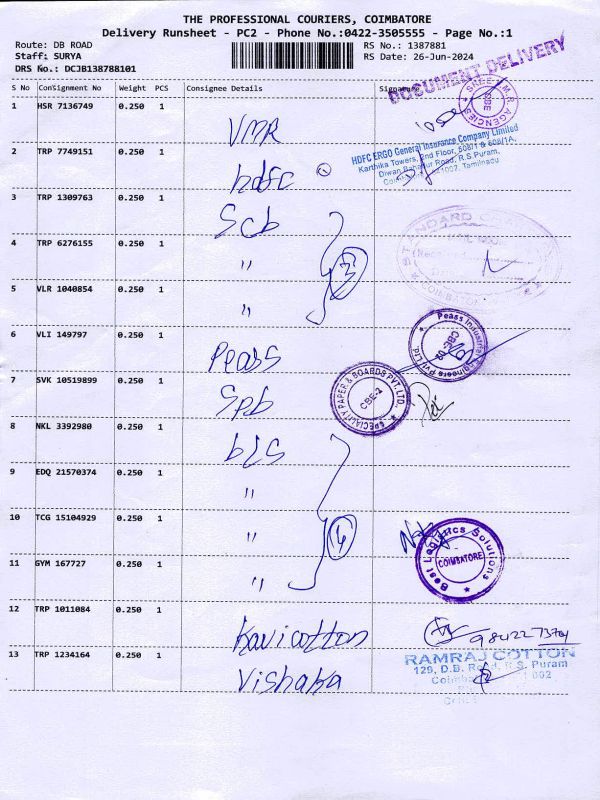 THE PROFESSIONAL COURIERS, COIMBATORE
Delivery Runsheet - PC2 - Phone No.:0422-3505555 - Page No.:1
Route: DB ROAD RS No.: 1387881
Staff: SURYA RS Date: 26-Jun-2024
DRS No.: DCJB138788101
DOCUMENT DELIVERY
S No Consignment No Weight PCS Consignee Details Signature
1 HSR 7136749 0.250 1 VMR
SREE V.M.R. AGENCIES CBE
2 TRP 7749151 0.250 1 hdfc
HDFC ERGO General Insurance Company Limited
Karthika Towers, 2nd Floor, 508/1 & 608/1A,
Diwan Bahadur Road, R.S.Puram,
641002, Tamilnadu
3 TRP 1309763 0.250 1 Scb
4 TRP 6276155 0.250 1 " 3
5 VLR 1040854 0.250 1 "
COIMBATORE
6 VLI 149797 0.250 1 Peass
Peass Industrial Engineers Pvt. Ltd.
7 SVK 10519899 0.250 1 Spb
SPECIALITY PAPER & BOARDS PVT. LTD. CBE-2
8 NKL 3392980 0.250 1 bls
9 EDQ 21570374 0.250 1 "
10 TCG 15104929 0.250 1 " 4
11 GYM 167727 0.250 1 "
Best Logistics Solutions COIMBATORE
12 TRP 1011084 0.250 1 Kavicotton
13 TRP 1234164 0.250 1 Vishaka
RAMRAJ COTTON
129, D.B. Road, R.S. Puram